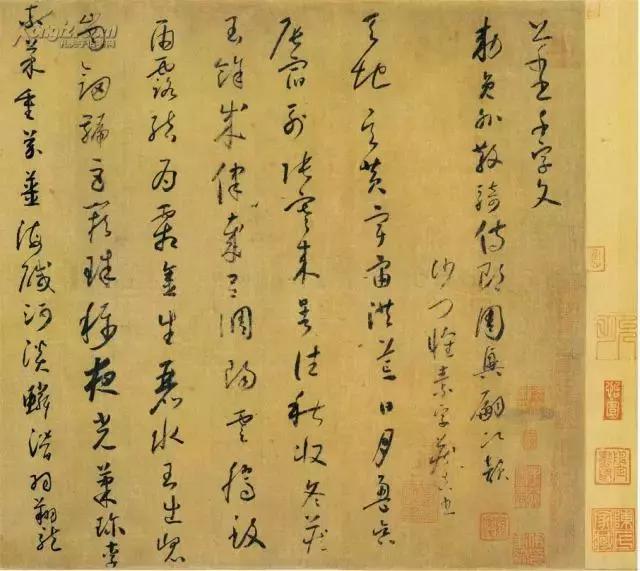 千字文
敕員外散騎侍郎周興嗣次韻
沙門懷素字藏真書
天地玄黃宇宙洪荒日月盈昃
辰宿列張寒來暑往秋收冬藏
閏餘成歲律呂調陽雲騰致
雨露結為霜金生麗水玉出崑
崗劍號巨闕珠稱夜光菓珍李
柰菜重芥薑海鹹河淡鱗潛羽翔龍